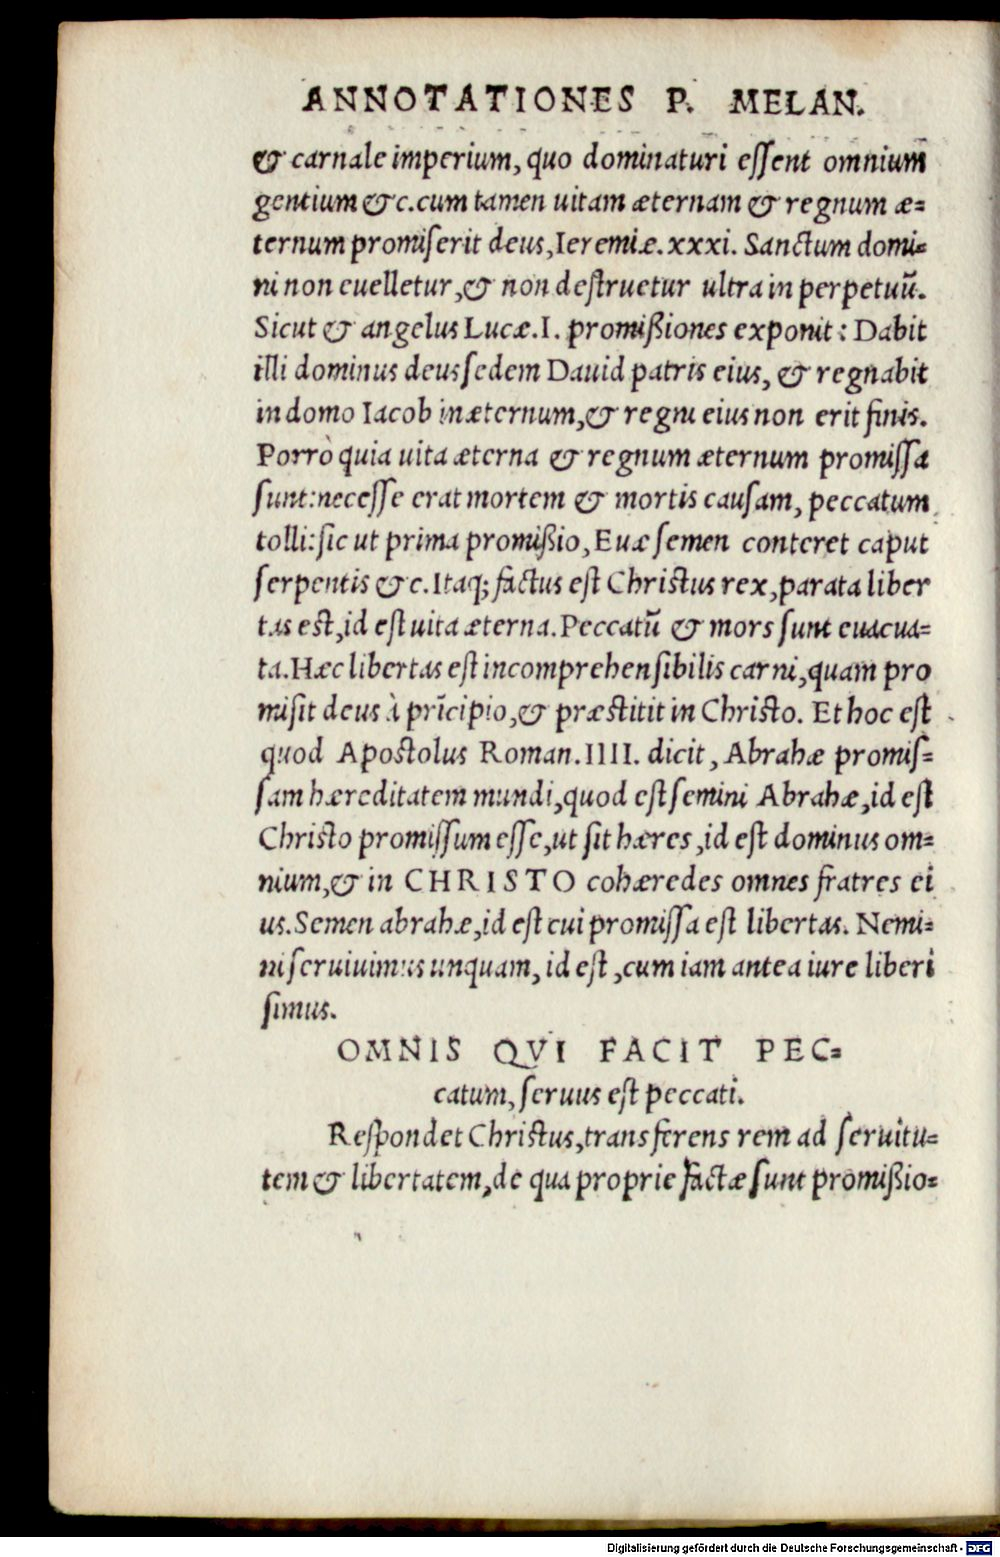 ANNOTATIONES P. MELAN.
& carnale imperium, quo dominaturi eſſent omnium
gentium &c. cum tamen uitam æternam & regnum æ=
ternum promiſerit deus, Ieremiæ. xxxi. Sanctum domi=
ni non euelletur, & non deſtruetur ultra in perpetuũ.
Sicut & angelus Lucæ. I. promißiones exponit: Dabit
illi dominus deus ſedem Dauid patris eius, & regnabit
in domo Iacob in æternum, & regni eius non erit finis.
Porrò quia uita æterna & regnum æternum promiſſa
ſunt: neceſſe erat mortem & mortis cauſam, peccatum
tolli: ſic ut prima promißio, Euæ ſemen conteret caput
ſerpentis &c. Itaq; factus eſt Chriſtus rex, parata liber
tas eſt, id eſt uita æterna. Peccatũ & mors ſunt euacua=
ta. Hæc libertas eſt incomprehenſibilis carni, quam pro
miſit deus à prĩcipio, & præſtitit in Chriſto. Et hoc eſt
quod Apoſtolus Roman. IIII. dicit, Abrahæ promiſ=
ſam hæreditatem mundi, quod eſt ſemini Abrahæ, id eſt
Chriſto promiſſum eſſe, ut ſit hæres, id eſt dominus om=
nium, & in CHRISTO cohæredes omnes fratres ei
us. Semen abrahæ, id eſt cui promiſſa eſt libertas. Nemi=
ni ſeruiuimus unquam, id eſt, cum iam antea iure liberi
ſimus.
OMNIS QVI FACIT PEC=
catum, ſeruus eſt peccati.
Reſpondet Chriſtus, transferens rem ad ſeruitu=
tem & libertatem, de qua proprie factæ ſunt promißio=
Digitalisierung gefördert durch die Deutsche Forschungsgemeinschaft - DFG